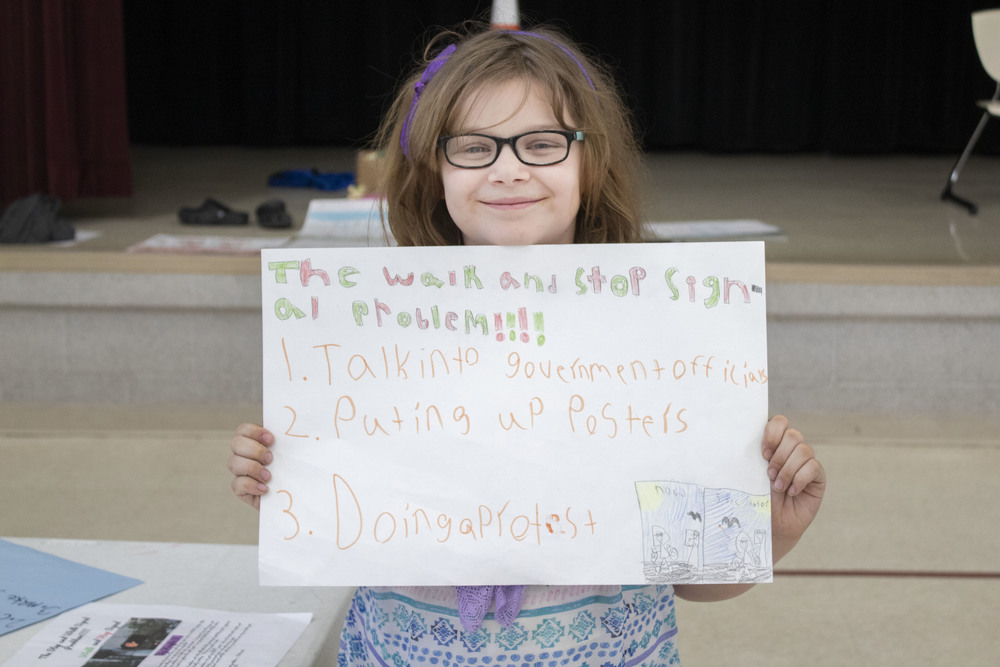 The walk and stop Sign-
al problem!!!!
1. Talkinto governmentofficials
2. Puting up Posters
3. Doingaprotest